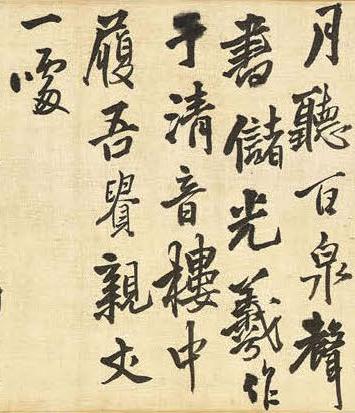 月聽百泉聲
書儲光羲作
于清音樓中
履吾親丈
一噱